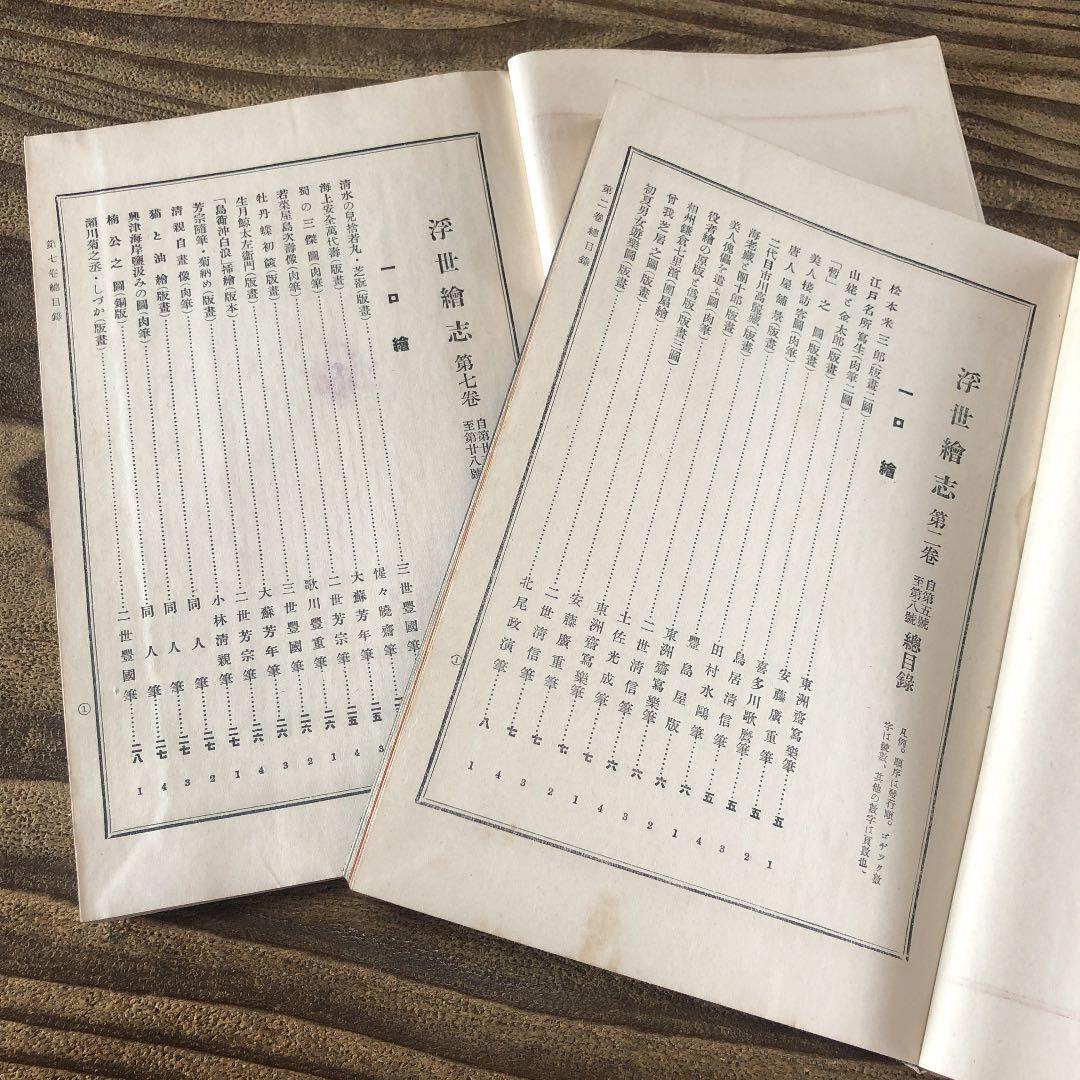 浮世繪志 第二卷 自第五號 至第八號 總目錄
凡例。順序は發行順。ゴヤツク數字は號數、其他の數字は頁數也。
一 口 繪
松本米三郎(版畫二圖)……東洲齋寫樂筆 五 1
江戸名所寫生(肉筆二圖)……安藤廣重筆 五 2
山姥と金太郎(版畫)……喜多川歌麿筆 五 3
「暫」之圖(版畫)……鳥居清信筆 五 4
美人接訪客圖(肉筆)……田村水鷗筆 六 1
唐人屋舖景(版畫)……豐島屋版 六 2
二代目市川高麗藏(版畫)……東洲齋寫樂筆 六 3
海老藏と團十郎(版畫)……二世清信筆 六 4
美人傀儡を遣ふ圖(肉筆)……土佐光成筆 七 1
役者繪の原版と僞版(版畫三圖)……東洲齋寫樂筆 七 2
相州鎌倉七里濱(團扇繪)……安藤廣重筆 七 3
曾我芝居之圖(版畫)……二世清信筆 七 4
初夏男女遊樂圖(版畫)……北尾政演筆 八 1
第二卷總目錄
①
浮世繪志 第七卷 自第廿 至第廿八號
一 口 繪
清水の兒捨若丸・芝翫(版畫)……三世豐國筆
海上安全萬代壽(版畫)……惺々曉齋筆 二五
蜀の三傑圖(肉筆)……大蘇芳年筆 二五 3
若菜屋島次壽像(肉筆)……二世芳宗筆 二五 4
牡丹蝶初篏(版畫)……歌川豐重筆 二六 1
生月鯨太左衞門(版畫)……三世豐國筆 二六 2
「島衞沖白浪」揷繪(版本)……大蘇芳年筆 二六 3
芳宗隨筆・菊納め(版畫)……二世芳宗筆 二六 4
清親自畫像(肉筆)……小林清親筆 二七 1
猫と油繪(版畫)……同人筆 二七 2
興津海岸鹽汲みの圖(肉筆)……同人筆 二七 3
楠公之圖(銅版)……同人筆 二七 4
瀬川菊之丞・しづか(版畫)……二世豐國筆 二八 1
第七卷總目錄
①